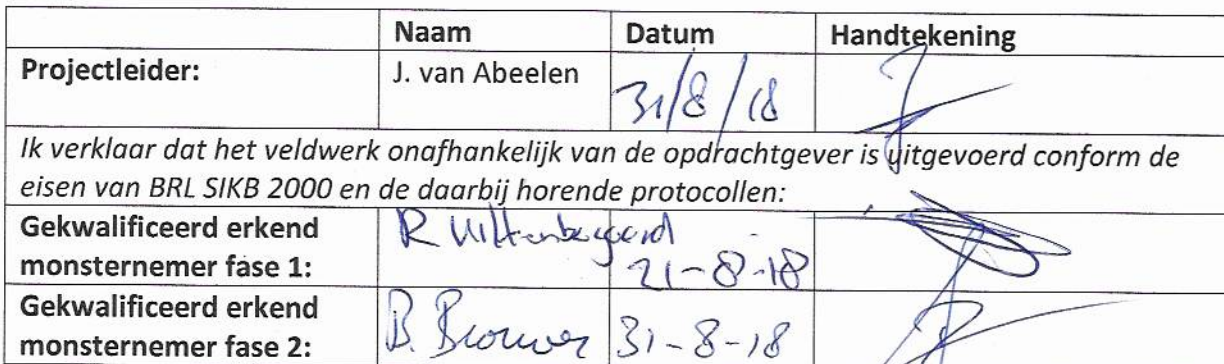 Naam Datum Handtekening
Projectleider: J. van Abeelen 31/8/18
Ik verklaar dat het veldwerk onafhankelijk van de opdrachtgever is uitgevoerd conform de
eisen van BRL SIKB 2000 en de daarbij horende protocollen:
Gekwalificeerd erkend R
monsternemer fase 1: 21-8-18
Gekwalificeerd erkend
monsternemer fase 2: B. Brouwer 31-8-18